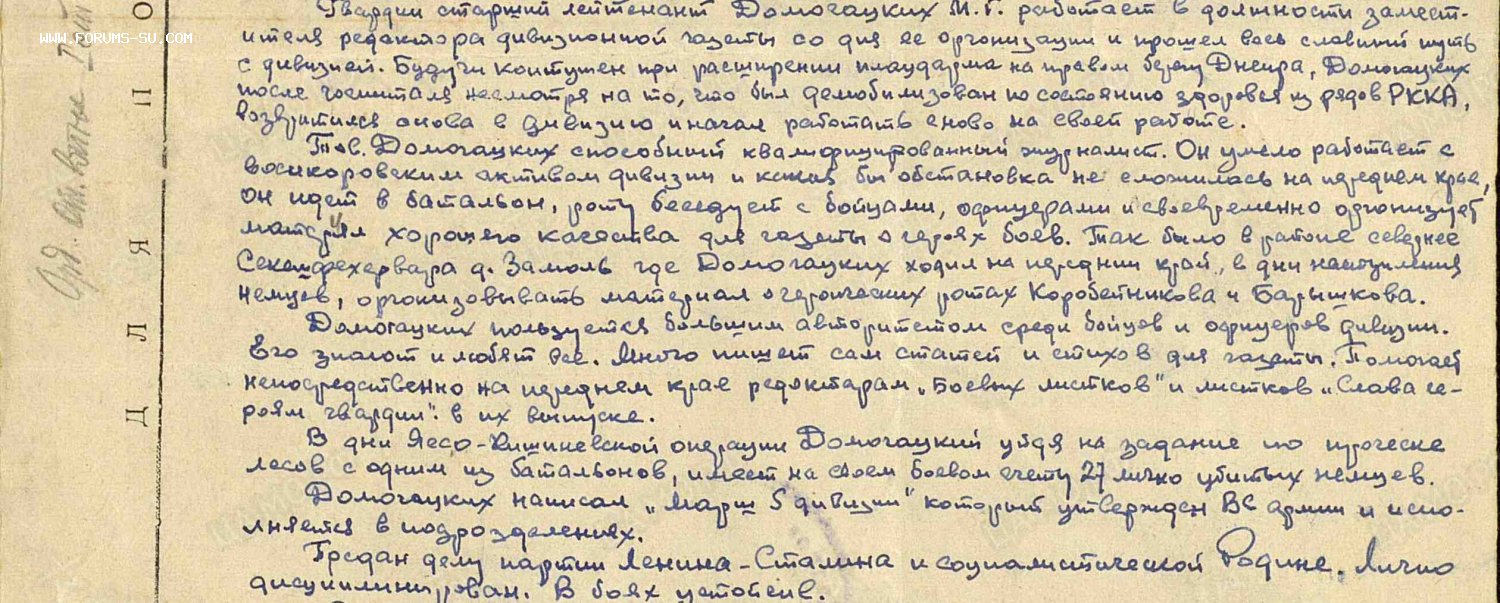 Гвардии старший лейтенант Домогацких М.Г. работает в должности замест-
WWW.FORUMS-SU.COM
ителя редактора дивизионной газеты со дня ее организации и прошел весь славный путь
с дивизией. Будучи контужен при расширении плацдарма на правом берегу Днепра, Домогацких
после госпиталя несмотря на то, что был демобилизован по состоянию здоровья из рядов РККА,
возвратился снова в дивизию и начал работать снова на своей работе.
Тов. Домогацких способный квалифицированный журналист. Он умело работает с
военкоровским активом дивизии и какая бы обстановка не сложилась на переднем крае,
он идет в батальон, роту беседует с бойцами, офицерами и своевременно организует
материал хорошего качества для газеты о героях боев. Так было в районе севернее
Секешфехервара д. Замоль где Домогацких ходил на передний край, в дни наступления
немцев, организовывать материал о героических ротах Коробейникова и Барышкова.
Домогацких пользуется большим авторитетом среди бойцов и офицеров дивизии.
Его знают и любят все. Много пишет сам статей и стихов для газеты. Помогает
непосредственно на переднем крае редакторам „Боевых листков" и листков „Слава ге-
роям гвардии". в их выпуске.
В дни Яссо-Кишиневской операции Домогацкий уйдя на задание по проческе
лесов с одним из батальонов, имеет на своем боевом счету 27 лично убитых немцев.
Домогацких написал „Марш 5 дивизии" который утвержден ВС армии и испо-
лняется в подразделениях.
Предан делу партии Ленина-Сталина и социалистической Родине. Лично
дисциплинирован. В боях устойчив.
ДЛЯ
ПО
Орд. От. Войны